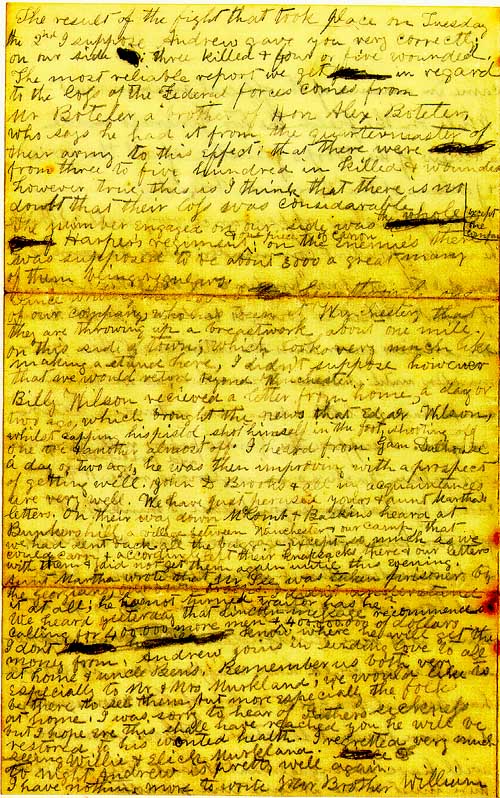 The result of the fight that took place on Tuesday
the 2nd I suppose Andrew gave you very correctly
on our side three killed & four or five wounded.
The most reliable report we get in regard
to the loss of the Federal forces comes from
Mr Boteler, a brother of Hon Alex. Boteler,
who says he had it from the quartermaster of
their army to this effect; that there were
from three to five hundred in killed & wounded
however true this is I think that there is no
doubt that their loss was considerable
The number engaged on our side was the whole except one company
Harpers regiment; on the enemies there
was supposed to be about 3000 a great many
of them being regulars.
of our company, who has been at Winchester that
they are throwing up a breastwork, about one mile
on this side of town, which looks very much like
making a stand here, I didn't suppose however
that we would retire beyond Winchester.
Billy Wilson recieved a letter from home, a day or
two ago, which brought the news that Edgar
whilst his pistol shot himself in the foot, shooting
one toe & another almost off. I heard from
a day or two ago, he was then improving with a prospect
of getting well. John D Brooks & all in acquaintances
are very well. We have just perused yours & aunt Marthas
letters. On their way down McComb & Baskins heard at
Bunkershill a village between Winchester & our camp, that
we had sent back all the except so much as we
could carry & left their knapsacks there & our letters
with them & did not get them again until this evening.
Aunt Martha wrote that Mr Lee was taken prisoner by
the
it at all; he
We heard yesterday that Lincoln recommends
calling for 400,000 more men & 400,000,000 of dollars
I dont know where he will get the
money from. Andrew joins in sending love to all
at home & uncle Bens. Remember us both very
especially to Mr & Mrs Murkland; we would like to
be there to see them but more especially the folk
at home. I was sorry to hear of Fathers sickness
but I hope ere this shall have reached you he will be
restored to his wonted health. I regretted very much
seeing Willie & Elick Murkland.
to night Andrew is pretty well again.
I have nothing more to write your Brother William